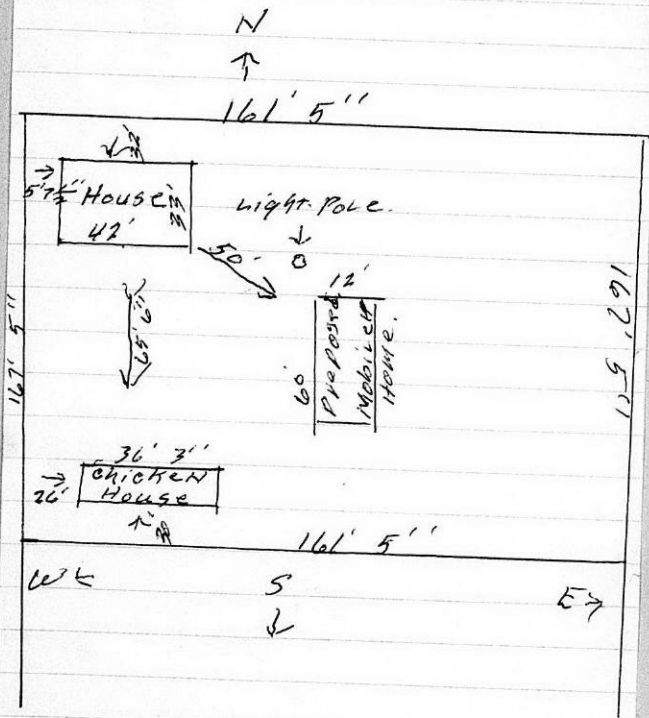 N
161' 5''
32'
5' 7½" House 33'
42'
Light Pole.
50'
12'
65' 6"
60'
Proposed
Mobile
Home.
167' 5''
167' 5"
36' 3"
26' Chicken
House
161' 5''
W
S
E